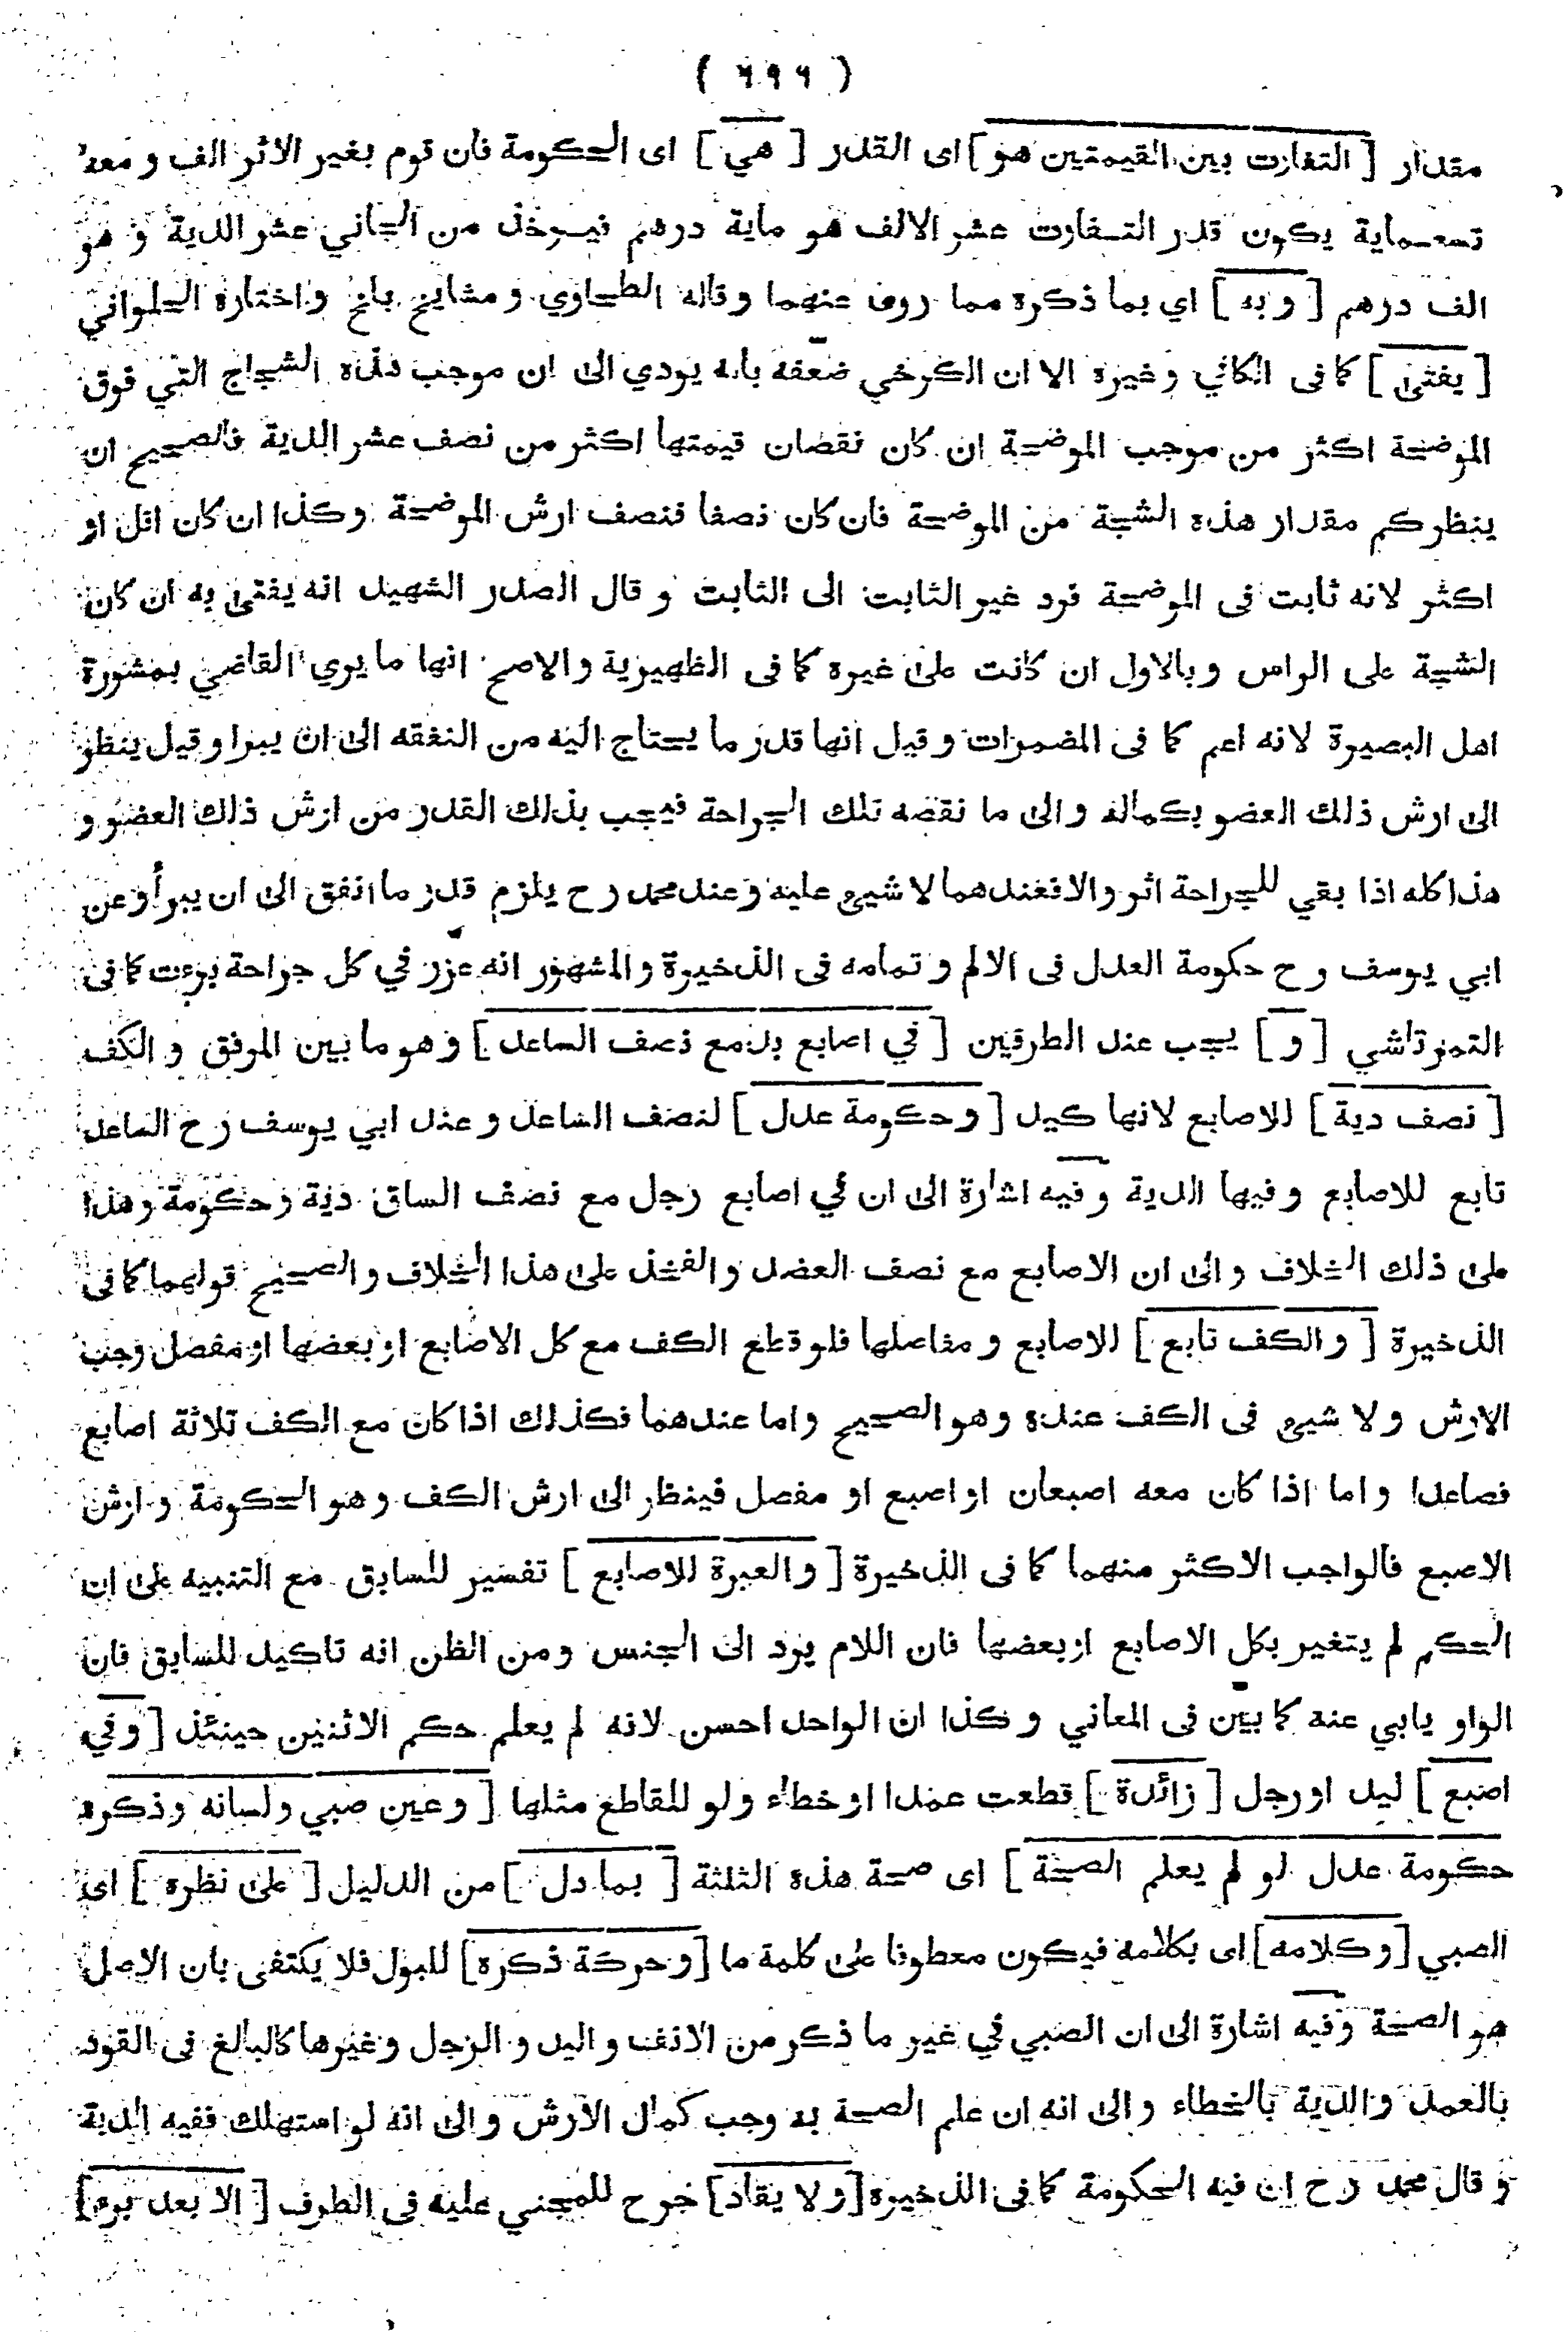 ( ٦٩٦ )
مقدار [ التفاوت بين القيمتين هو ] اى القدر [ هي ] اى الحكومة فان قوم بغير الاثر الف و معه
تسعماية يكون قدر التفاوت عشر الالف هو ماية درهم فيوخذ من الجاني عشر الدية و هو
الف درهم [ و به ] اي بما ذكرة مما روى عنهما و قاله الطحاوي و مشايخ بلخ و اختارة الحلواني
[ يفتى ] كما فى الكافي و غيرة الا ان الكرخي ضعفه بانه يودي الى ان موجب هذة الشجاج التي فوق
الموضحة اكثر من موجب الموضحة ان كان نقصان قيمتها اكثر من نصف عشر الدية فالصحيح ان
ينظر كم مقدار هذة الشجة من الموضحة فان كان نصفا فنصف ارش الموضحة وكذا ان كان اقل او
اكثر لانه ثابت فى الموضحة فرد غير الثابت الى الثابت و قال الصدر الشهيد انه يفتى به ان كان
الشجة على الراس وبالاول ان كانت على غيرة كما فى الظهيرية والاصح انها ما يري القاضي بمشورة
اهل البصيرة لانه اعم كما فى المضمرات و قيل انها قدر ما يحتاج اليه من النفقه الى ان يبرا وقيل ينظر
الى ارش ذلك العضو بكماله و الى ما نقصه تلك الجراحة فيجب بذلك القدر من ارش ذلك العضو و
هذا كله اذا بقي للجراحة اثر والا فعندهما لا شيئ عليه و عند محمد رح يلزم قدر ما انفق الى ان يبرأ وعن
ابي يوسف رح حكومة العدل فى الالم و تمامه فى الذخيرة والمشهور انه عزر في كل جراحة برءت كما فى
التمرتاشي [ و ] يجب عند الطرفين [ في اصابع يد مع نصف الساعد ] و هو ما بين المرفق و الكف
[ نصف دية ] للاصابع لانها كيد [ و حكومة عدل ] لنصف الساعد و عند ابي يوسف رح الساعد
تابع للاصابع و فيها الدية و فيه اشارة الى ان في اصابع رجل مع نصف الساق دية و حكومة و هذا
على ذلك الخلاف و الى ان الاصابع مع نصف العضد و الفخذ على هذا الخلاف و الصحيح قولهما كما فى
الذخيرة [ و الكف تابع ] للاصابع و مفاصلها فلو قطع الكف مع كل الاصابع او بعضها او مفصل وجب
الارش و لا شيئ فى الكف عندة و هو الصحيح و اما عندهما فكذلك اذا كان مع الكف ثلاثة اصابع
فصاعدا و اما اذا كان معه اصبعان او اصبع او مفصل فينظر الى ارش الكف و هو الحكومة و ارش
الاصبع فالواجب الاكثر منهما كما فى الذخيرة [ و العبرة للاصابع ] تفسير للسابق مع التنبيه على ان
الحكم لم يتغير بكل الاصابع او بعضها فان اللام يرد الى الجنس و من الظن انه تاكيد للسابق فان
الواو يابي عنه كما بين فى المعاني و كذا ان الواحد احسن لانه لم يعلم حكم الاثنين حينئذ [ و في
اصبع ] ليد او رجل [ زائدة ] قطعت عمدا او خطاء و لو للقاطع مثلها [ و عين صبي و لسانه و ذكره
حكومة عدل لو لم يعلم الصحة ] اى صحة هذة الثلثة [ بما دل ] من الدليل [ على نظره ] اى
الصبي [ و كلامه ] اى بكلامه فيكون معطوفا على كلمة ما [ و حركة ذكرة ] للبول فلا يكتفى بان الاصل
هو الصحة و فيه اشارة الى ان الصبي في غير ما ذكر من الانف و اليد و الرجل و غيرها كالبالغ فى القود
بالعمد و الدية بالخطاء و الى انه ان علم الصحة به وجب كمال الارش و الى انه لو استهلك ففيه الدية
و قال محمد رح ان فيه الحكومة كما فى الذخيرة [ و لا يقاد ] جرح للمجني عليه فى الطرف [ الا بعد برء ]